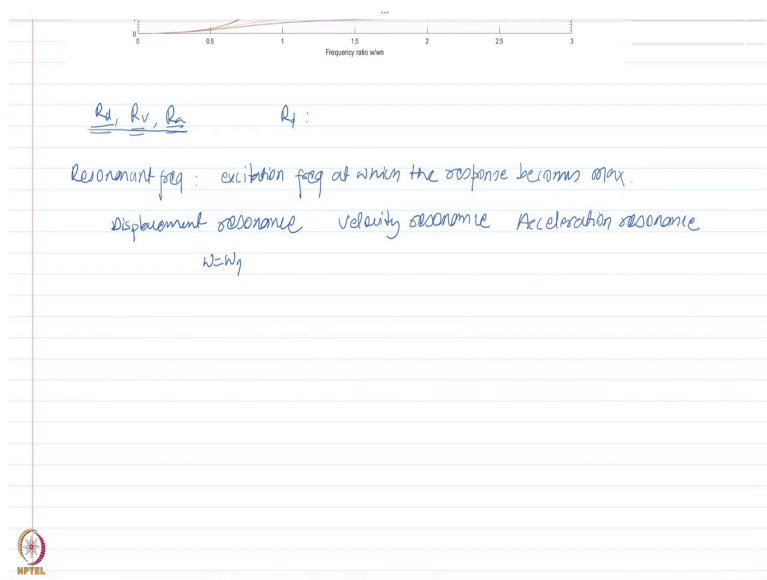 ...
0
0 0.5 1 1.5 2 2.5 3
Frequency ratio w/wn
Rd, Rv, Ra Rd :
Resonant freq : excitation freq at which the response becomes max.
Displacement resonance Velocity resonance Acceleration resonance
ω=ω
NPTEL